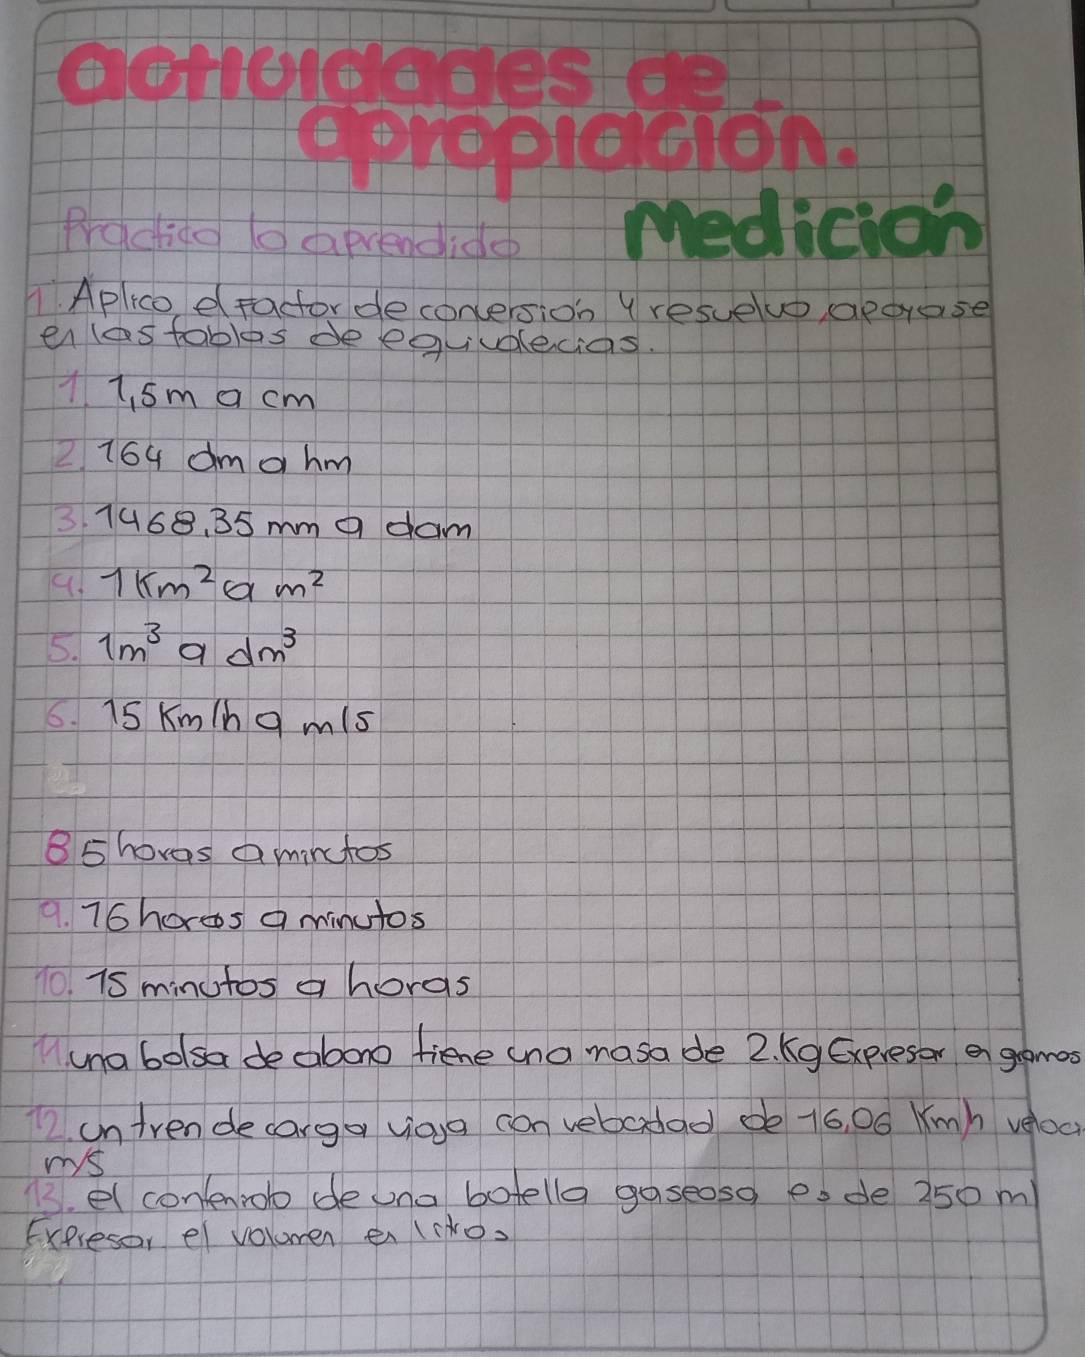 actividades de
apropiación.
Medición
Practico lo aprendido
1. Aplico el factor de conversión y resuelvo, apoyase
en las tablas de equivalecias.
1. 1,5m a cm
2. 164 dm a hm
3. 1468,35 mm a dam
4. 1 Km² a m²
5. 1m³ a dm³
6. 15 Km/h a m/s
8 5 horas a minutos
9. 16 horas a minutos
10. 15 minutos a horas
11. una bolsa de abono tiene una masa de 2.Kg Expresar en gramos
12. un tren de carga viaja con velocidad de 16,06 Km/h veloci
m/s
13. el contenido de una botella gaseosa es de 250 ml
Expresar el volumen en litros